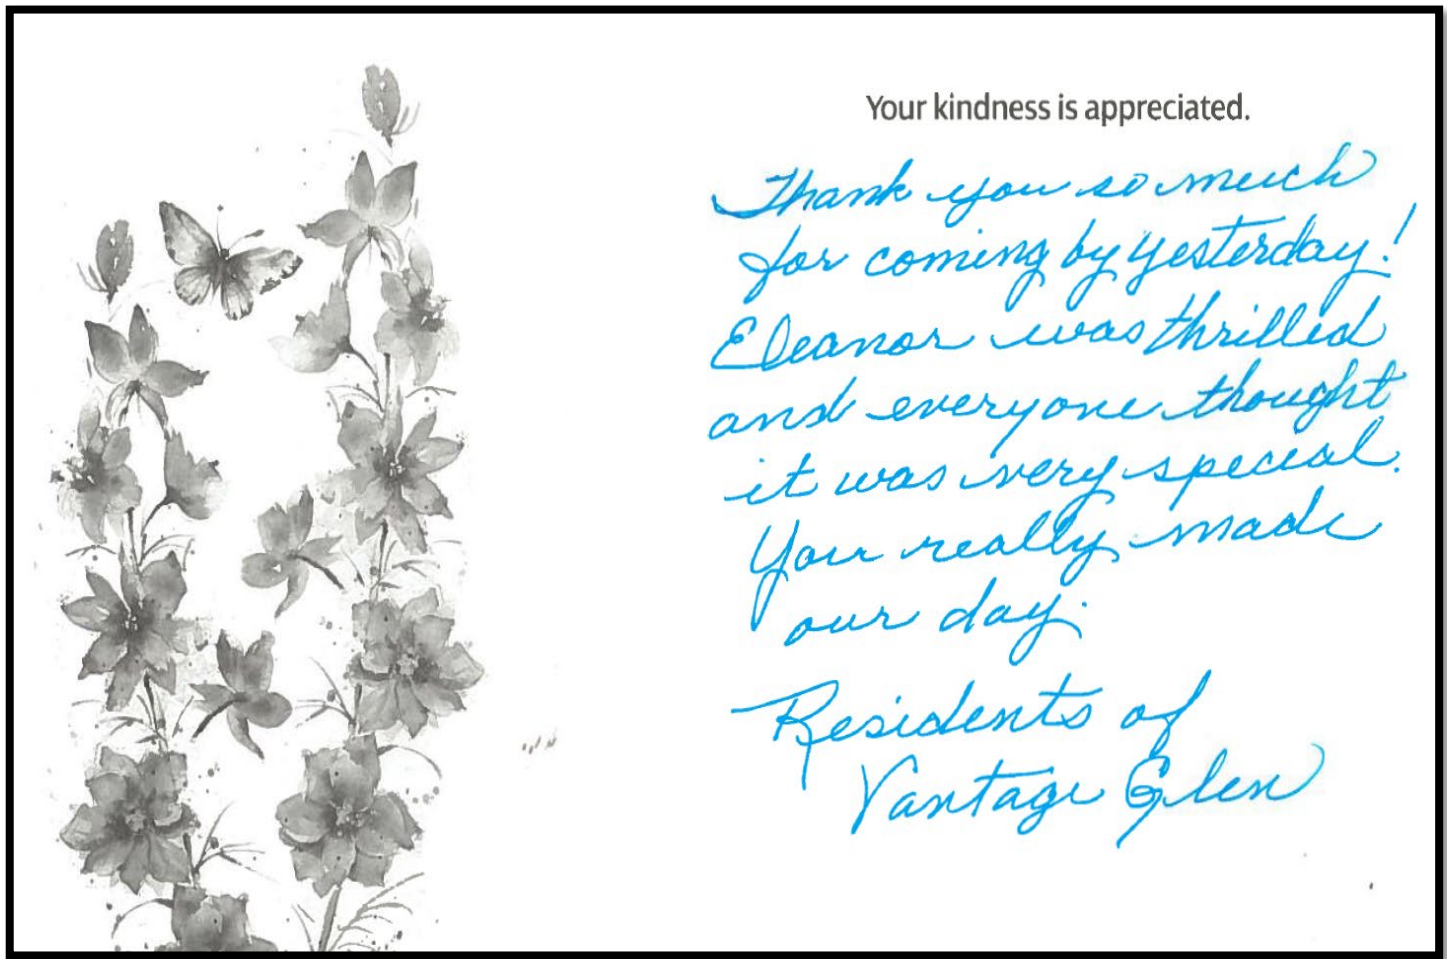 Your kindness is appreciated.
Thank you so much
for coming by yesterday!
Eleanor was thrilled
and everyone thought
it was very special.
You really made
our day.
Residents of
Vantage Glen